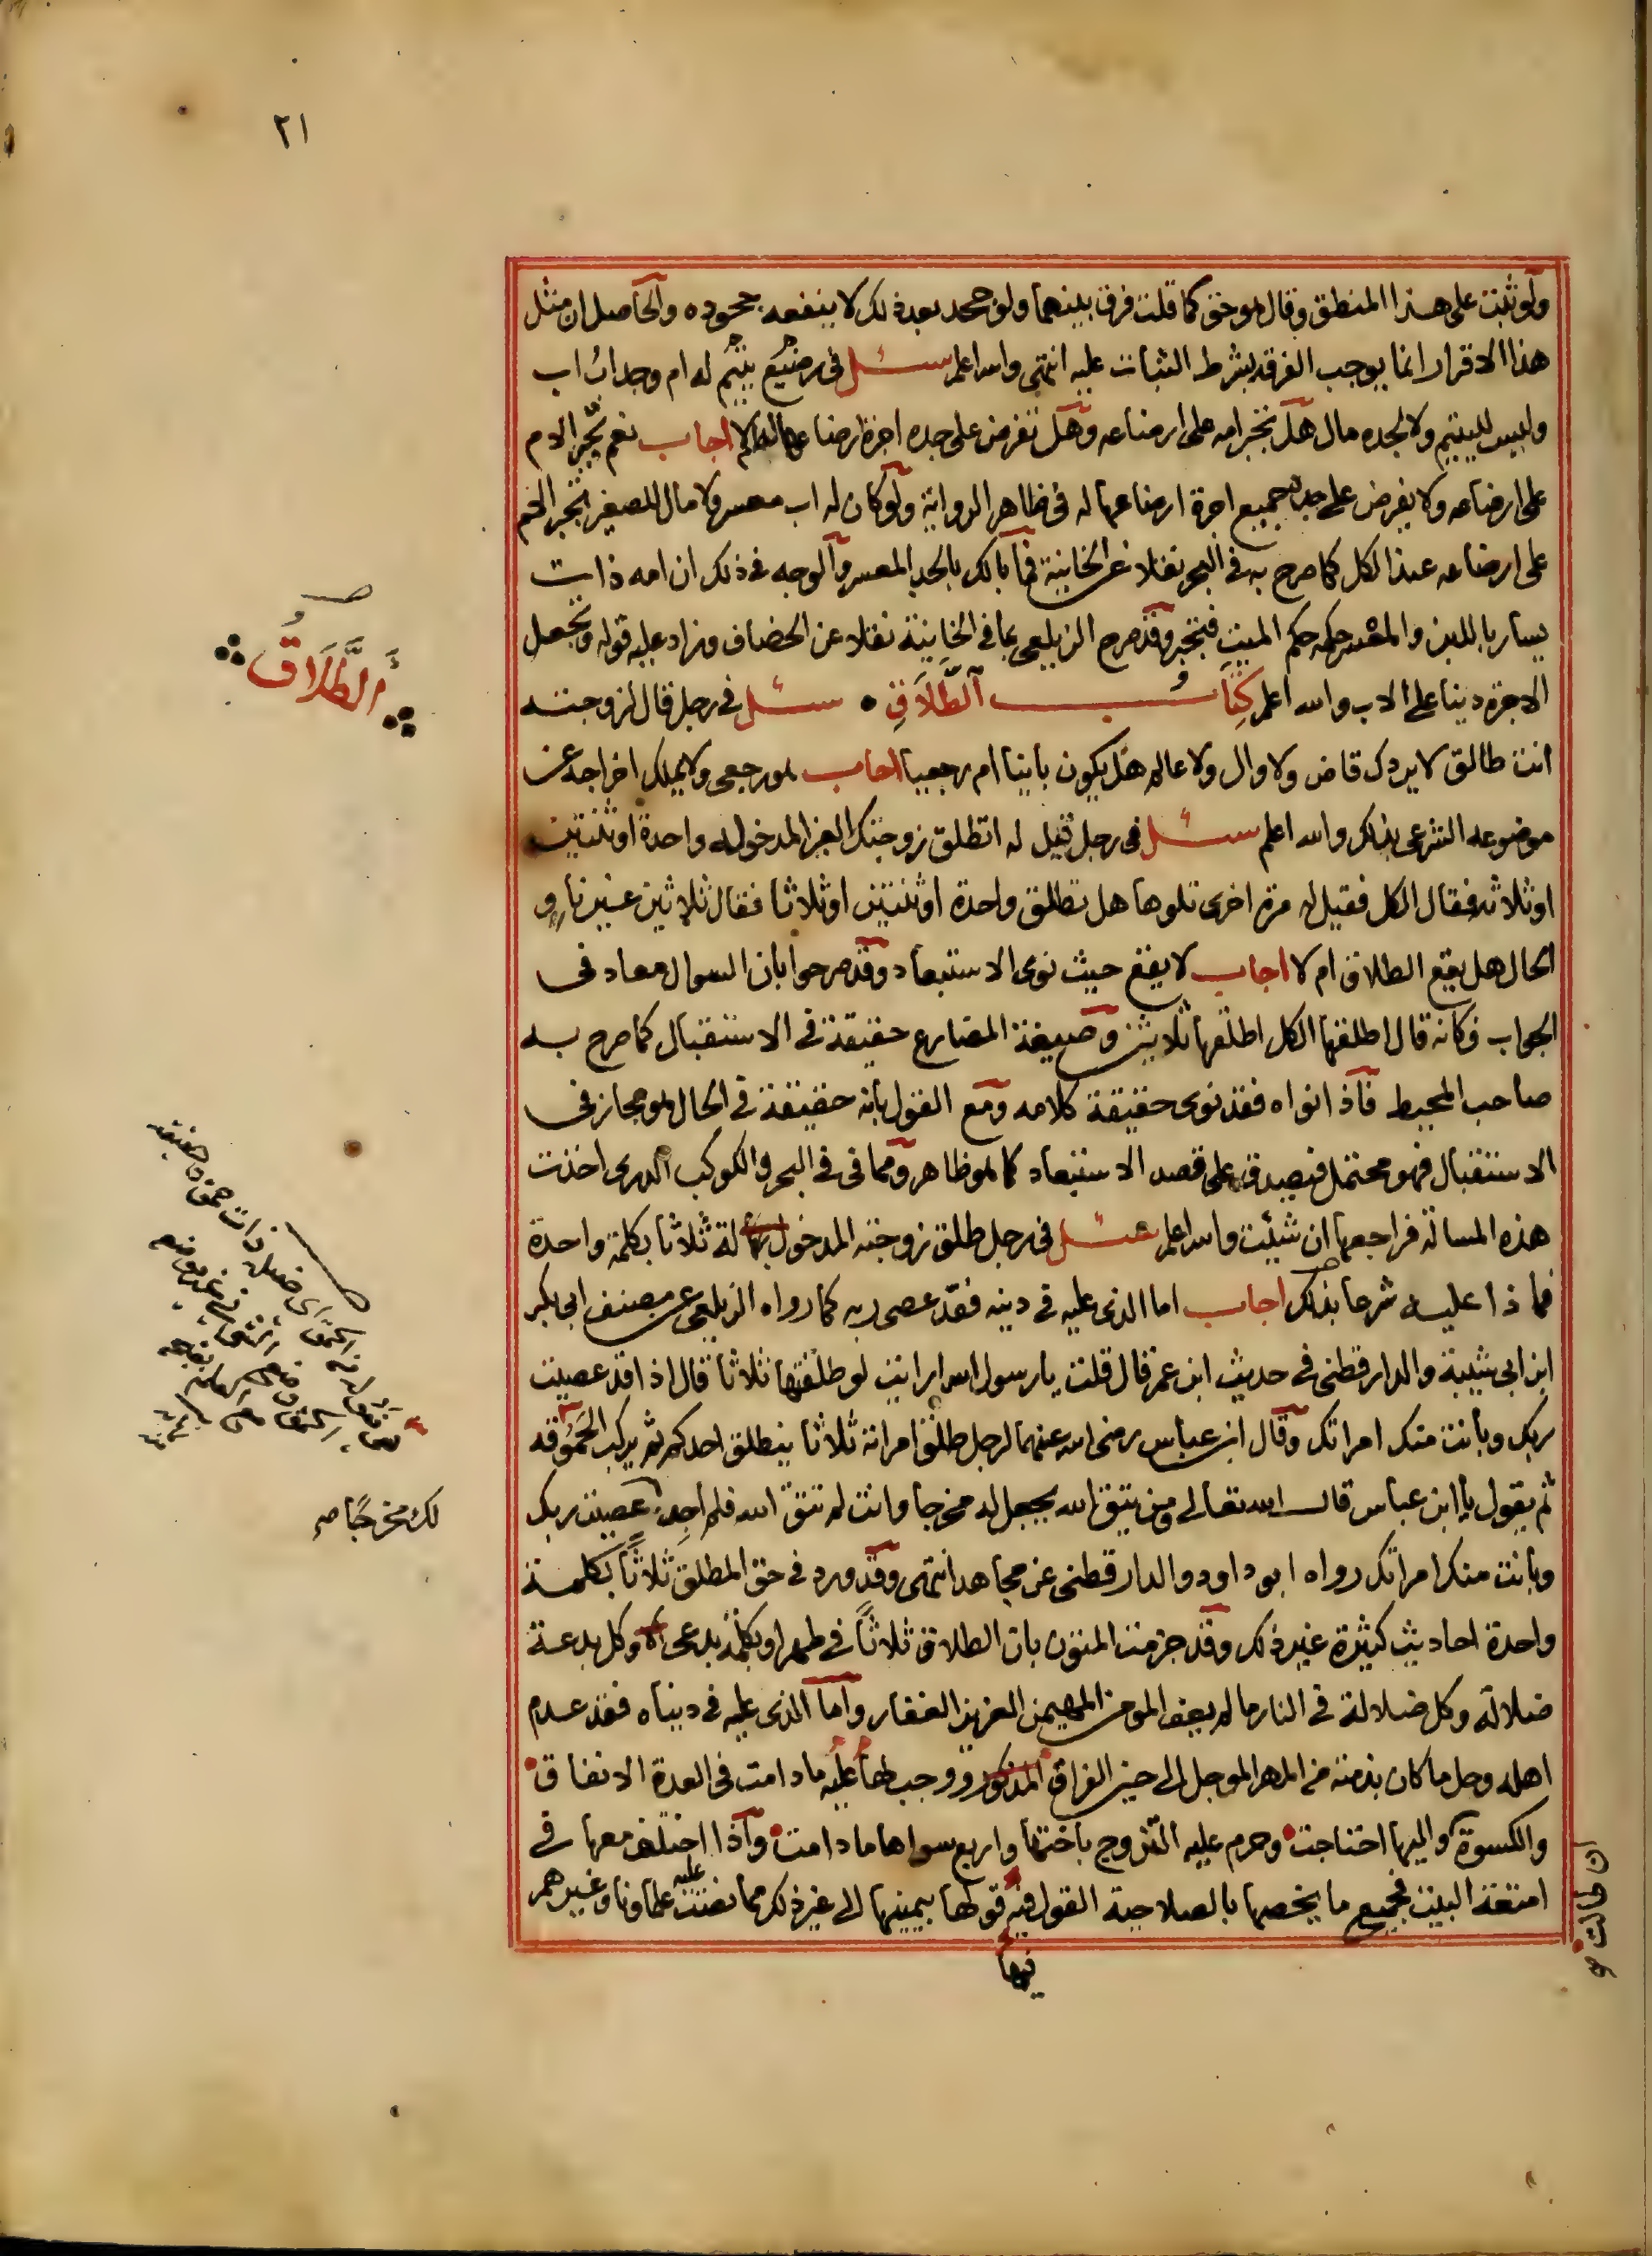 ٢١
ولو ثبت على هذا المنطق وقال هو حق كما قلت فرق بينهما ولو جحد بعد ذلك لا ينفعه جحوده والحاصل ان مثل
هذا الاقرار انما يوجب الفرقة بشرط الثبات عليه انتهى والله اعلم سئل في رضيع يتيم له ام وجد اب اب
وليس لليتيم ولا لجده مال هل تجبر امه على ارضاعه وهل تفرض على جده اجرة ارضاعها له ام لا اجاب نعم تجبر الام
على ارضاعه ولا يفرض على جده جميع اجرة ارضاعها له في ظاهر الرواية ولو كان له اب معسر ولا مال للصغير تجبر الام
على ارضاعه عند الكل كما صرح به في البحر نقلا عن الخانية فما بالك بالجد المعسر والوجه في ذلك ان امه ذات
يسار باللبن والمعسر حكمه حكم الميت فتجبر وقد صرح الزيلعي بما في الخانية نقلا عن الخصاف وزاد عليه قوله وتجعل
الاجرة دينا على الاب والله اعلم كِتَابُ الطَّلَاقِ سئل في رجل قال لزوجته
انت طالق لا يردك قاض ولا وال ولا عالم هل يكون باينا ام رجعيا اجاب هو رجعي ولا يملك اخراجه عن
موضوعه الشرعي بذلك والله اعلم سئل في رجل قيل له اتطلق زوجتك الغير المدخول بها واحدة او ثنتين
او ثلاثة فقال الكل فقيل له مرة اخرى تلوها هل تطلق واحدة او ثنتين او ثلاثا فقال ثلاثين غير ناو
الحال هل يقع الطلاق ام لا اجاب لا يقع حيث نوى الاستبعاد وقد صرحوا بان السوال معاد في
الجواب فكانه قال اطلقها الكل اطلقها ثلاثين وصيغة المضارع حقيقة في الاستقبال كما صرح به
صاحب المحيط فاذا نواه فقد نوى حقيقة كلامه ومع القول بانه حقيقة في الحال هو مجاز في
الاستقبال فهو محتمل فيصدق على قصد الاستبعاد كما هو ظاهر ومما في في البحر والكوكب الدري اخذت
هذه المسالة فراجعها ان شئت والله اعلم سئل في رجل طلق زوجته المدخول بها له ثلاثا بكلمة واحدة
فماذا عليه شرعا بذلك اجاب اما الذي عليه في دينه فقد عصى ربه كما رواه الزيلعي عن مصنف ابي بكر
ابن ابي شيبة والدارقطني في حديث ابن عمر قال قلت يا رسول الله ارايت لو طلقتها ثلاثا قال اذا قد عصيت
ربك وبانت منك امراتك وقال ابن عباس رضي الله عنهما لرجل طلق امراته ثلاثا ينطلق احدكم ثم يركب الحَمُوقه
ثم يقول يا ابن عباس قال الله تعالى ومن يتق الله يجعل له مخرجا وانت لم تتق الله فلم اجد عصيت ربك
وبانت منك امراتك رواه ابو داود والدارقطني عن مجاهد انتهى وقد ورد في حق المطلق ثلاثًا بكلمة
واحدة احاديث كثيرة غير ذلك وقد جزمت المتون بان الطلاق ثلاثًا في طهر او بكلمة بدعي وكل بدعة
ضلالة وكل ضلالة في النار ما لم يعف المومن المهيمن العزيز الغفار واما الذي عليه في دنياه فقد عدم
اهله وحل ما كان بذمته من المهر الموجل الى حين الفراق المذكور ووجب لها عليه ما دامت في العدة الانفاق
والكسوة واليها احتاجت وحرم عليه التزوج باختها واربع سواها ما دامت واذا اختلف معها في
امتعة البيت فجميع ما يخصها بالصلاحية القول فيه قولها بيمينها الى غير ذلك مما نصت عليه علماونا وغيرهم
فيها
الطَّلَاق
لك مخرجًا صح
ان كانت